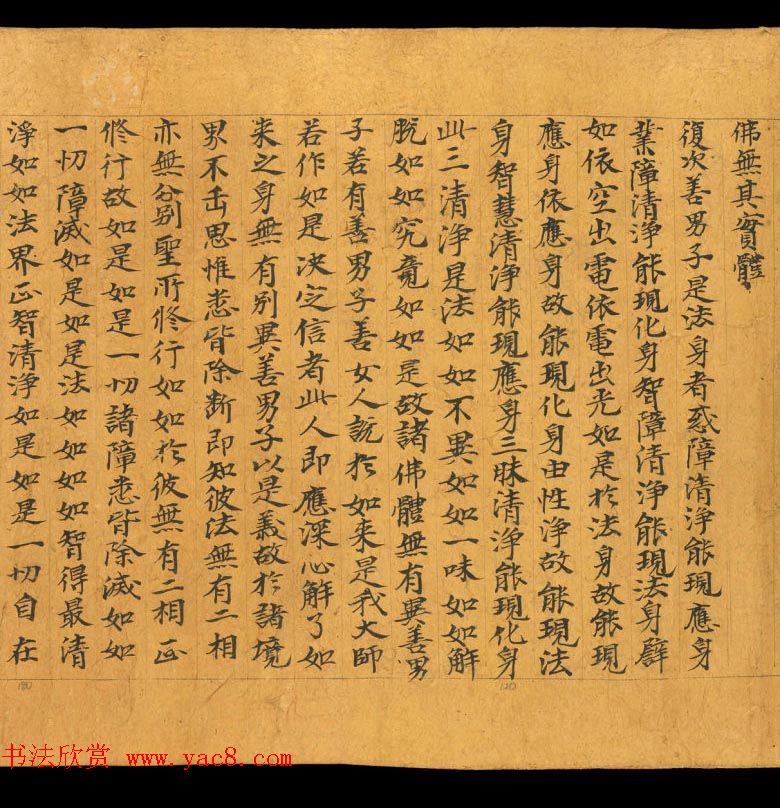 佛無真實體
復次善男子是法身者惑障清淨能現應身
業障清淨能現化身智障清淨能現法身譬
如依空出電依電出光如是於法身故能現
應身依應身故能現化身由性淨故能現法
身智慧清淨能現應身三昧清淨能現化身
此三清淨是法如如不異如如一味如如解
脫如如究竟如如是故諸佛體無有異善男
子若有善男子善女人說於如來是我大師
若作如是決定信者此人即應深心解了如
来之身無有別異善男子以是義故於諸境
界不㐀思惟悉皆除断即知彼法無有二相
亦無分別聖所修行如如於彼無有二相正
修行故如是如是一切諸障悉皆除滅如如
一切障滅如是如是法如如如如智得最清
淨如如法界正智清淨如是如是一切自在
180
120
书法欣赏 www.yac8.com